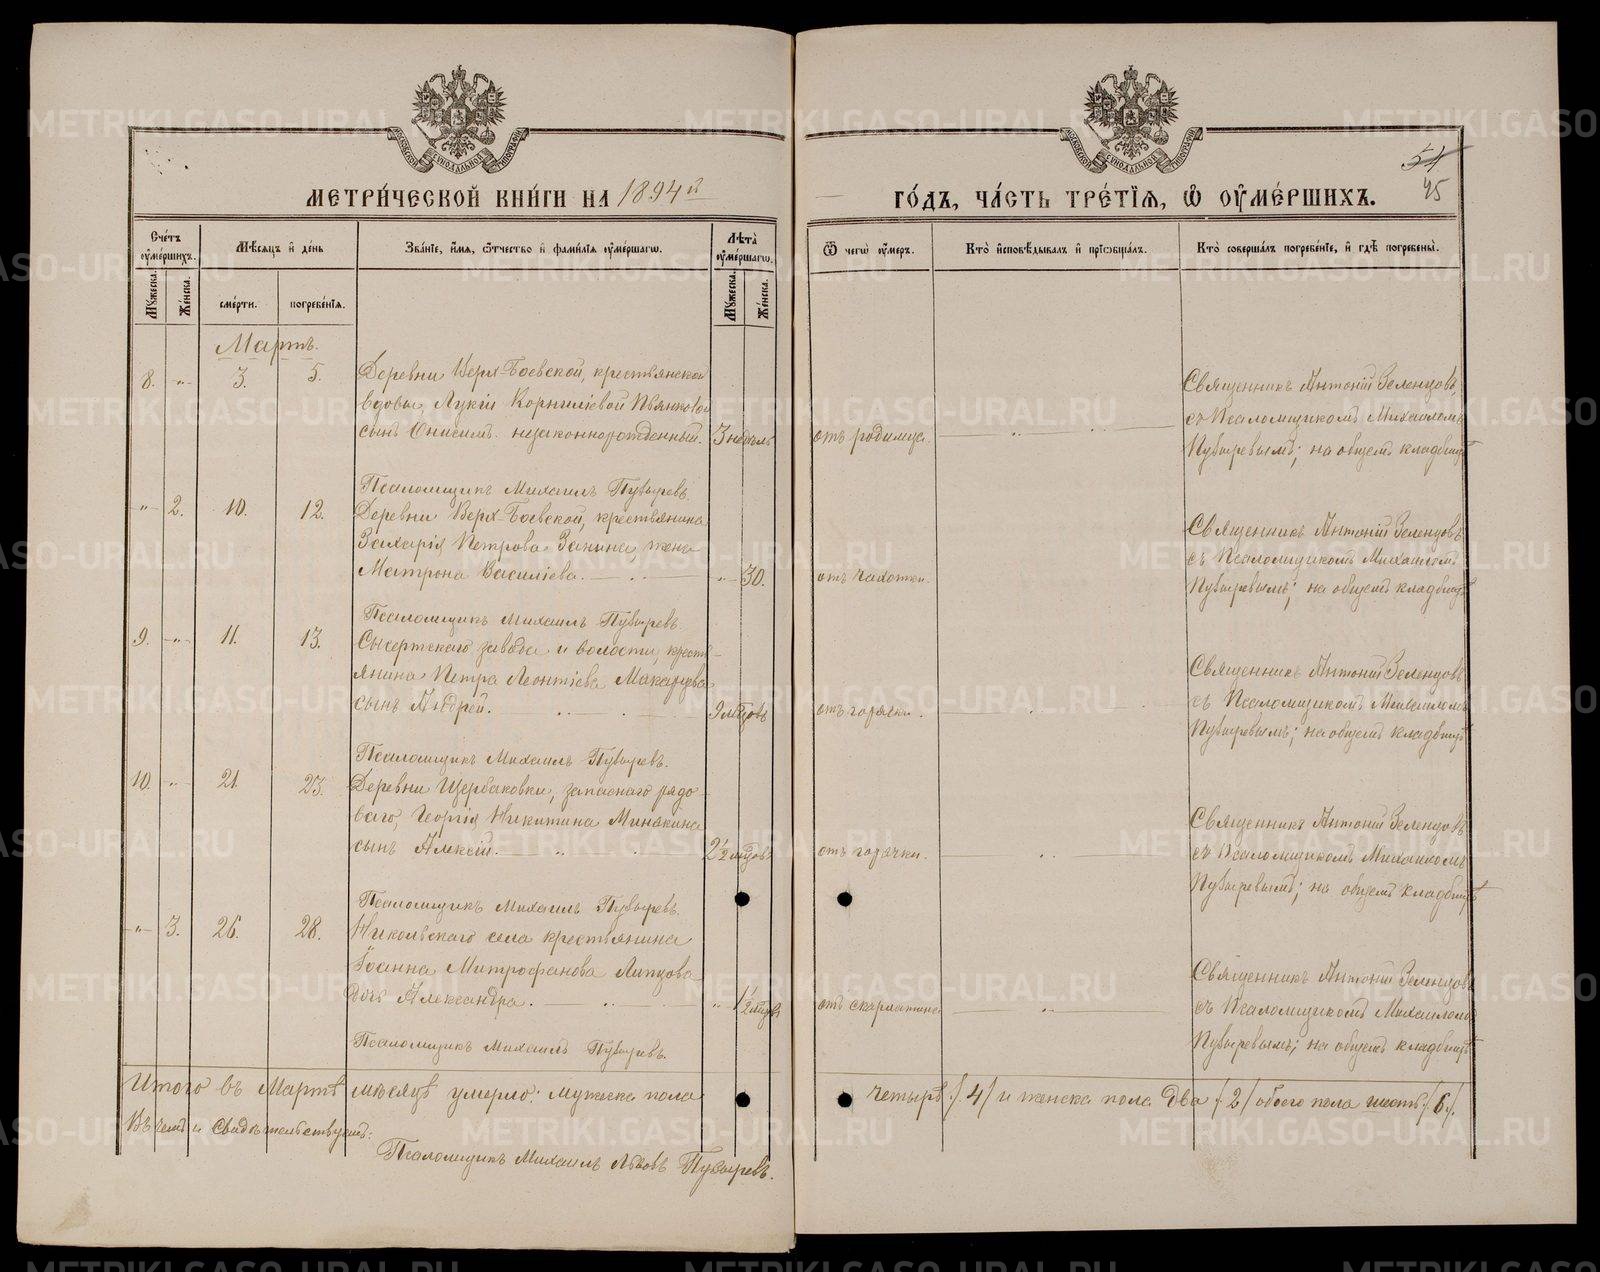 МЕТРИ́ЧЕСКОЙ КНИ́ГИ НА 1894й
ГО́ДЪ, ЧА́СТЬ ТРЕ́ТІѦ, Ѡ҆ ОУ҆МЕ́РШИХЪ.
51
45
Сче́тъ оу҆ме́ршихъ.
Мѣ́сѧцъ и҆ де́нь
Зва́ніе, и҆́мѧ, ѻ҆́тчество и҆ фами́лїѧ оу҆ме́ршагѡ.
Лѣ́та оу҆ме́ршагѡ.
Ѿ чегѡ̀ оу҆́меръ.
Кто̀ и҆сповѣ́дывалъ и҆ прїѡбща́лъ.
Кто̀ соверша́лъ погребе́нїе, и҆ гдѣ̀ погребены̀.
Му́жеска.
Же́нска.
сме́рти.
погребе́нїѧ.
Му́жеска.
Же́нска.
Мартъ.
8. „ 3. 5. Деревни Верх-Боевской, крестьянской
вдовы, Лукіи Корниліевой Пьянковой
сынъ Онисимъ незаконнорожденный. 3 недѣль
отъ родимца.
Священникъ Антоній Зеленцовъ,
съ Псаломщикомъ Михаиломъ
Пузыревымъ; на общемъ кладбищѣ
Псаломщикъ Михаилъ Пузыревъ.
„ 2. 10. 12. Деревни Верх-Боевской, крестьянина
Захарія Петрова Занина, жена
Матрона Василіева. „ 30.
отъ чахотки.
Священникъ Антоній Зеленцовъ
съ Псаломщикомъ Михаиломъ
Пузыревымъ; на общемъ кладбищѣ
Псаломщикъ Михаилъ Пузыревъ.
9. „ 11. 13. Сысертскаго завода и волости, кресть-
янина Петра Леонтіева Макарцева
сынъ Андрей. 9 мѣсцовъ
отъ горячки.
Священникъ Антоній Зеленцовъ
съ Псаломщикомъ Михаиломъ
Пузыревымъ; на общемъ кладбищѣ
Псаломщикъ Михаилъ Пузыревъ.
10. „ 21. 23. Деревни Щербаковки, запаснаго рядо-
ваго, Георгія Никитина Минакина
сынъ Алексій. 2 1/2 мѣсцовъ
отъ горячки.
Священникъ Антоній Зеленцовъ
съ Псаломщикомъ Михаиломъ
Пузыревымъ; на общемъ кладбищѣ
Псаломщикъ Михаилъ Пузыревъ.
„ 3. 26. 28. Никольскаго села крестьянина
Іоанна Митрофанова Липцова
дочь Александра. „ 1 1/2 мѣсцовъ
отъ скарлатины
Священникъ Антоній Зеленцовъ
съ Псаломщикомъ Михаиломъ
Пузыревымъ; на общемъ кладбищѣ
Псаломщикъ Михаилъ Пузыревъ.
Итого въ Мартѣ мѣсяцѣ умерло: мужеска пола четыре /4/ и женска пола два /2/ обоего пола шесть /6/.
Въ чемъ и свидѣтельствуемъ:
Псаломщикъ Михаилъ Львовъ Пузыревъ.